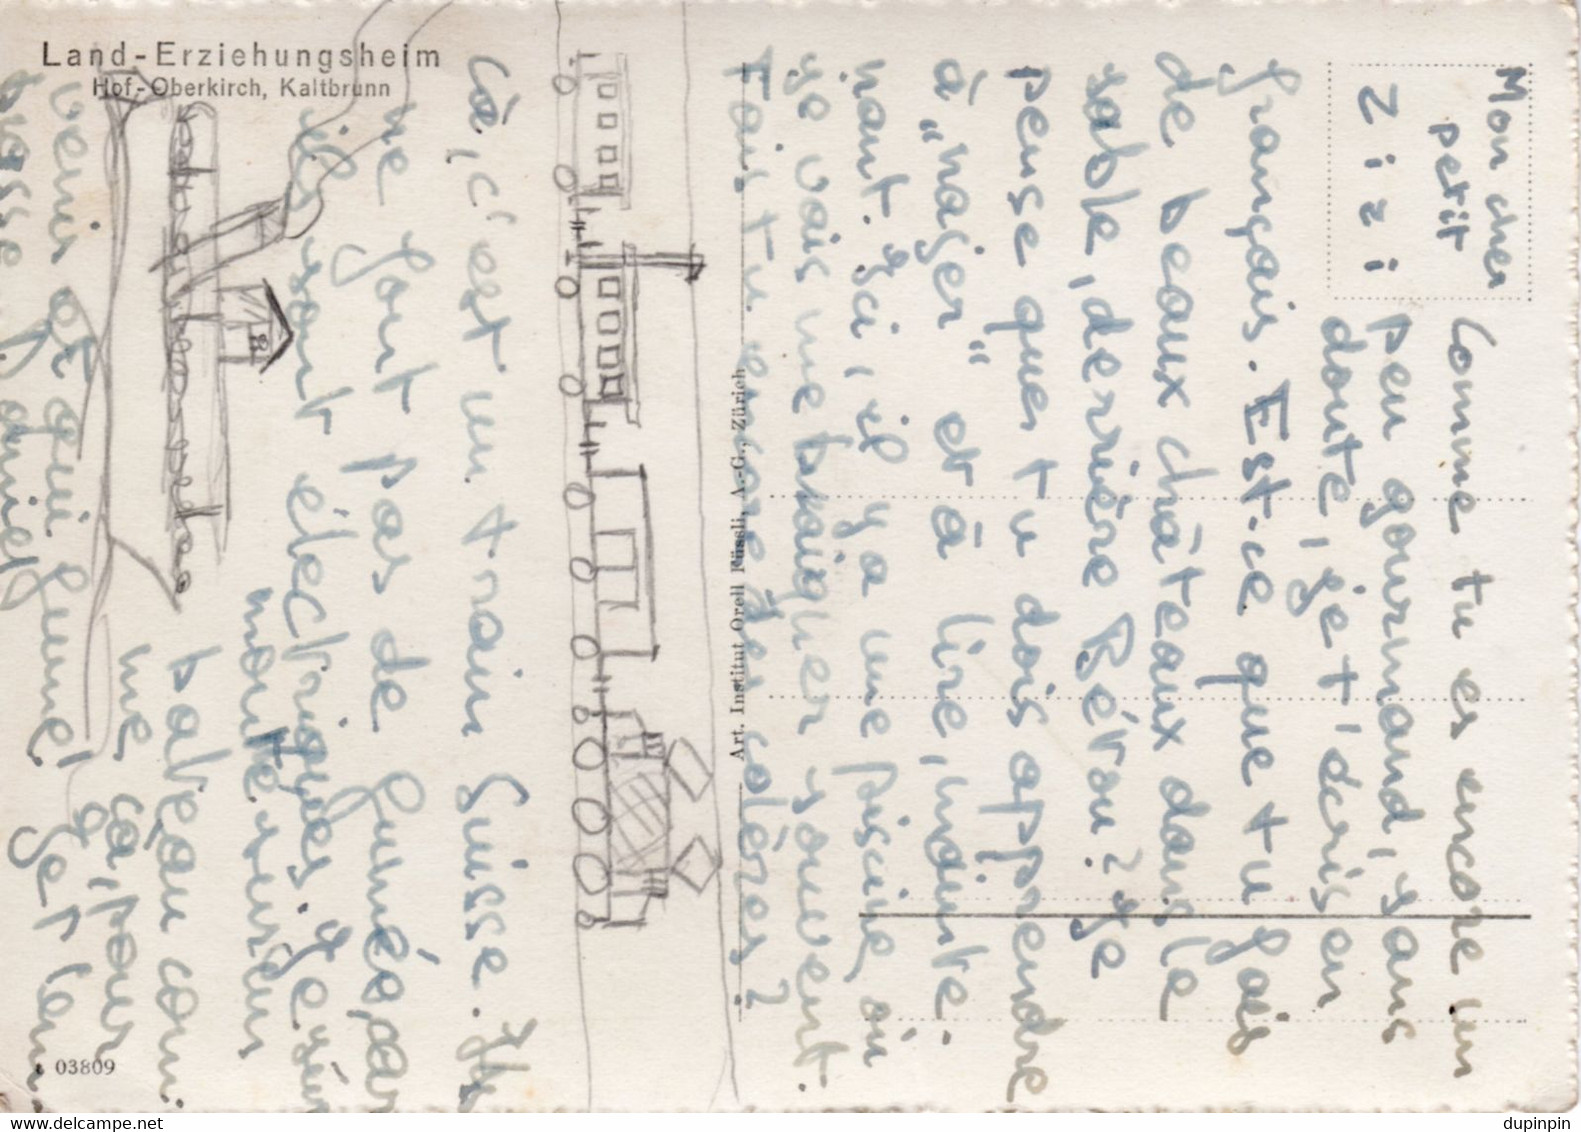 Land-Erziehungsheim
Hof-Oberkirch, Kaltbrunn
Mon cher
petit
Zizi
Comme tu es encore un
peu gourmand, sans
doute, je t'écris en
français. Est-ce que tu fais
de beaux châteaux dans le
sable, derrière Bétou? Je
pense que tu dois apprendre
à "nager" et à lire, moute.
nant. Ici, il y a une piscine, où
je vais me baigner souvent.
Fais tu encore des colères?
Art. Institut Orell Füssli, A.-G., Zürich
Cà, c'est un train Suisse. Ils
ne font pas de fumée, car
ils sont électriques. Je viens
monté sur un
bateau com
me ça, pour
venir et qui fume!
03809
dupinpin